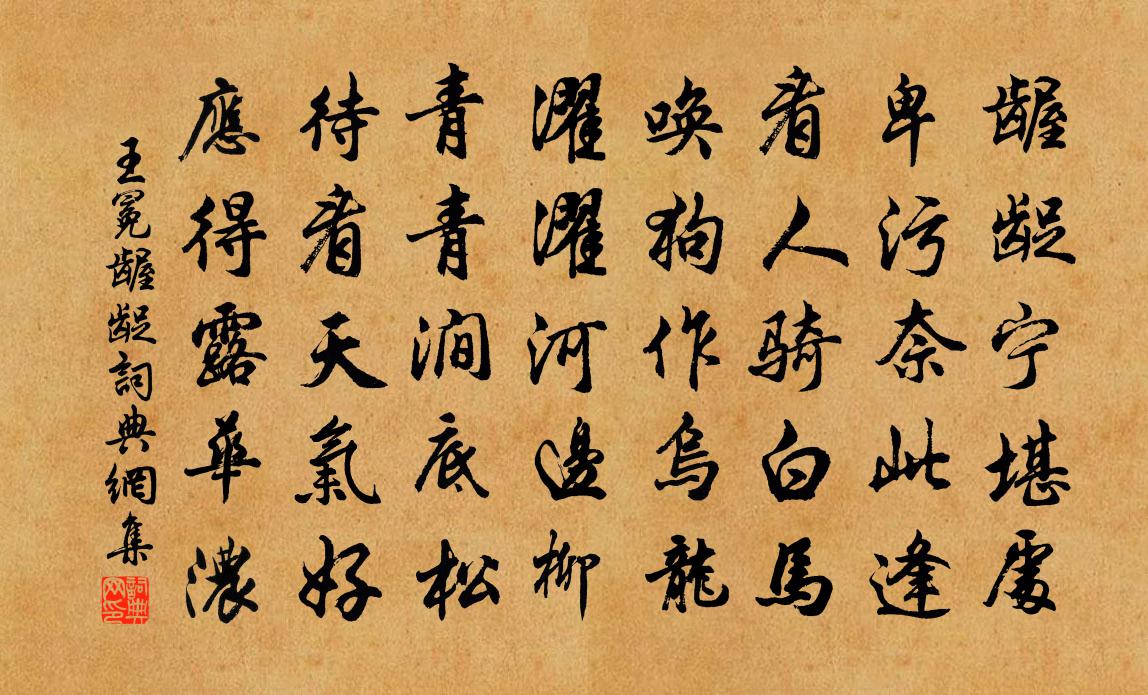 齷齪宁堪處
卑污奈此逢
看人騎白馬
唤狗作烏龍
濯濯河邊柳
青青澗底松
待看天氣好
應得露華濃
王冕齷齪詞典網集
詞典网印